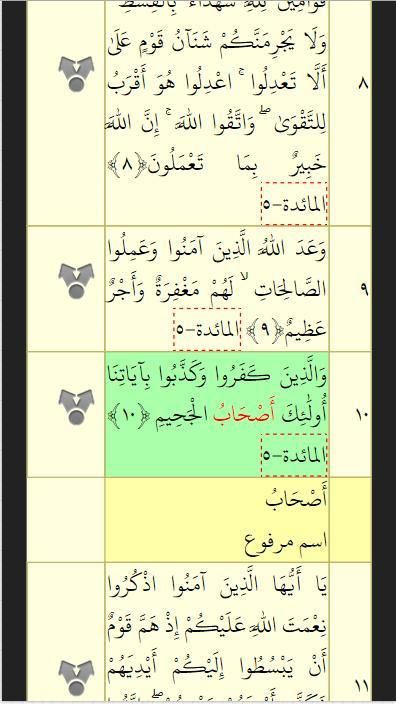 قَوَّامِينَ لِلَّهِ شُهَدَاءَ بِالْقِسْطِ
وَلَا يَجْرِمَنَّكُمْ شَنَآنُ قَوْمٍ عَلَىٰ
٨ أَلَّا تَعْدِلُوا ۚ اعْدِلُوا هُوَ أَقْرَبُ
لِلتَّقْوَىٰ ۖ وَاتَّقُوا اللَّهَ ۚ إِنَّ اللَّهَ
خَبِيرٌ بِمَا تَعْمَلُونَ﴿٨﴾
المائدة-٥
وَعَدَ اللَّهُ الَّذِينَ آمَنُوا وَعَمِلُوا
٩ الصَّالِحَاتِ ۙ لَهُمْ مَغْفِرَةٌ وَأَجْرٌ
عَظِيمٌ﴿٩﴾ المائدة-٥
وَالَّذِينَ كَفَرُوا وَكَذَّبُوا بِآيَاتِنَا
١٠ أُولَٰئِكَ أَصْحَابُ الْجَحِيمِ ﴿١٠﴾
المائدة-٥
أَصْحَابُ
اسم مرفوع
يَا أَيُّهَا الَّذِينَ آمَنُوا اذْكُرُوا
نِعْمَتَ اللَّهِ عَلَيْكُمْ إِذْ هَمَّ قَوْمٌ
١١ أَنْ يَبْسُطُوا إِلَيْكُمْ أَيْدِيَهُمْ